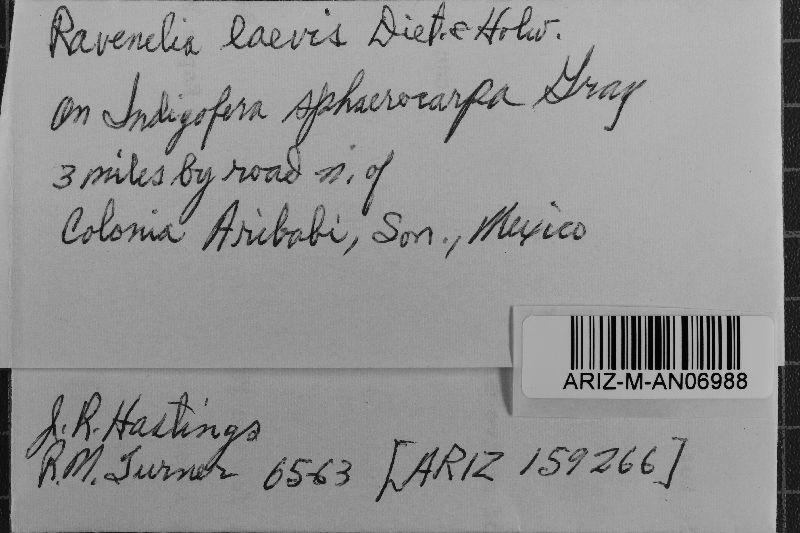 Ravenelia laevis Diet. & Holw.
on Indigofera sphaerocarpa Gray
3 miles by road n. of
Colonia Aribabi, Son., Mexico
ARIZ-M-AN06988
J.R. Hastings
R.M. Turner 6563 [ARIZ 159266]